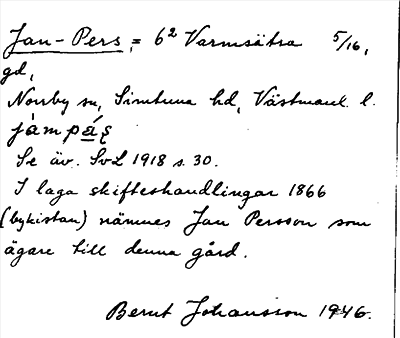 Jan-Pers, = 6² Varmsätra 5/16,
gd,
Norrby sn, Simtuna hd, Västmanl. l.
jàmpáʂ
Se äv. SvL 1918 s. 30.
I laga skifteshandlingar 1866
(bykistan) nämnes Jan Persson som
ägare till denna gård.
Bernt Johansson 1946.